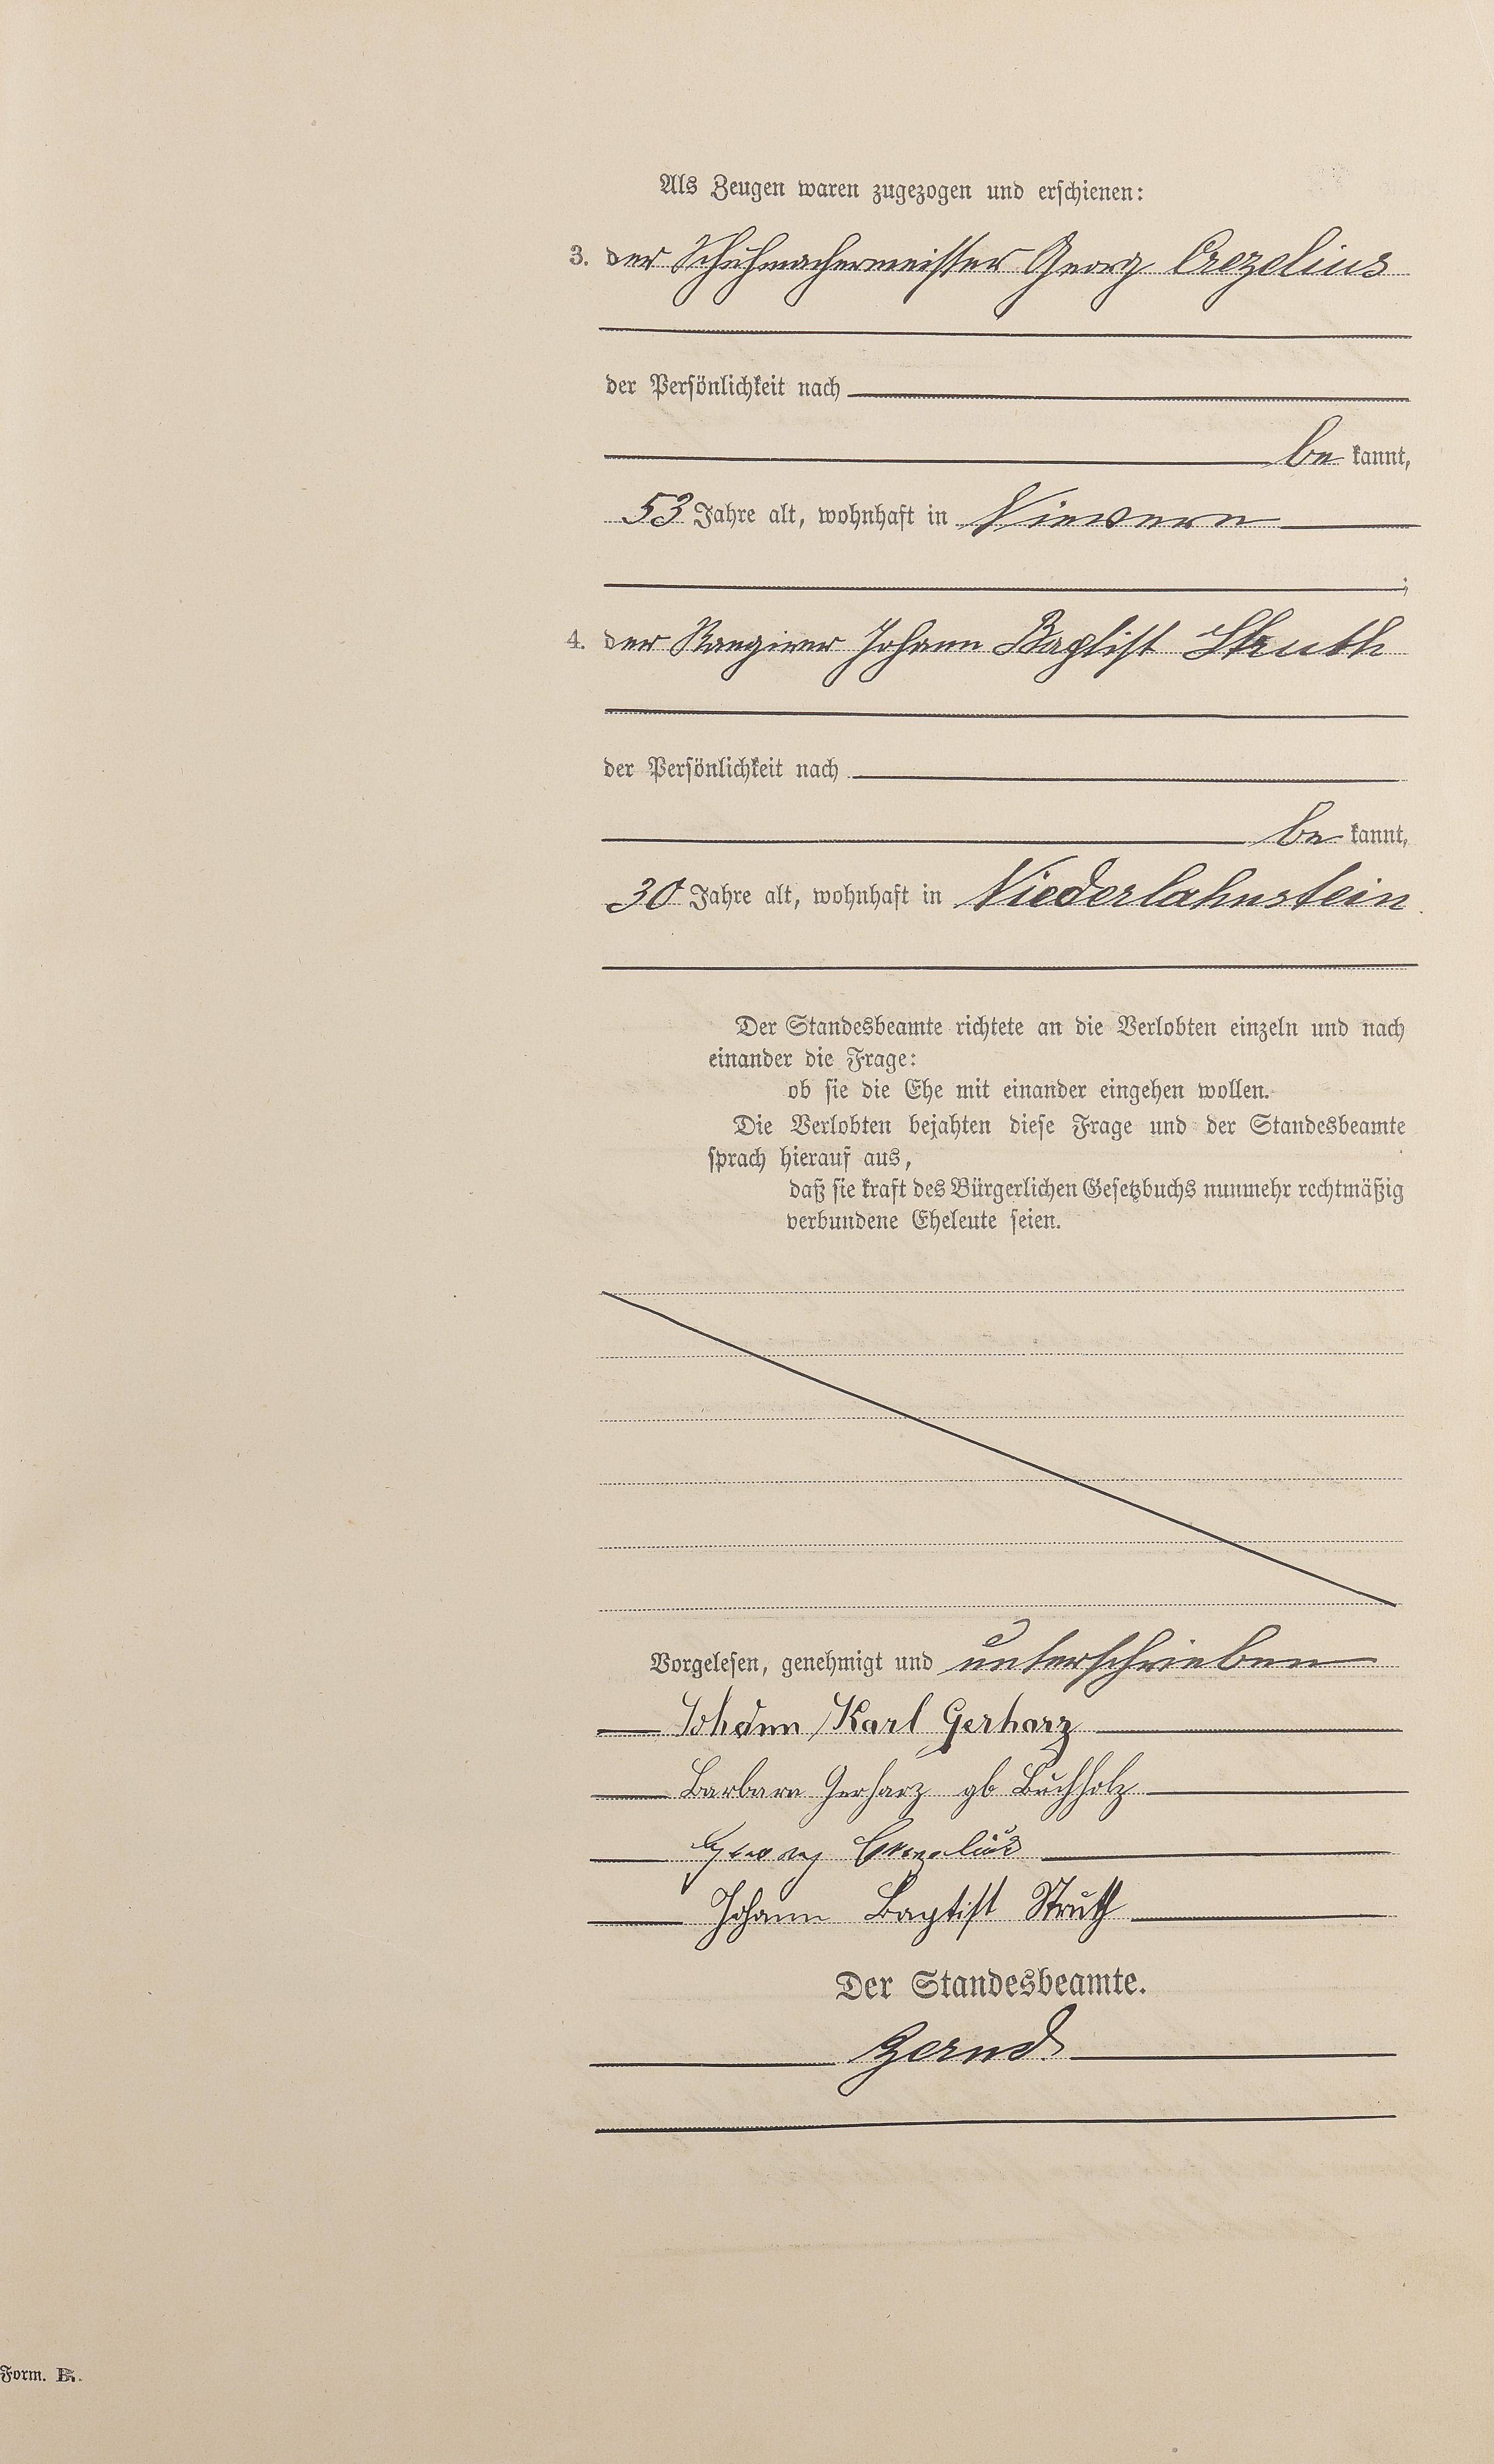 Als Zeugen waren zugezogen und erschienen:
3. der Schuhmachermeister Georg Crezelius
der Persönlichkeit nach
be kannt,
53 Jahre alt, wohnhaft in Nievern
;
4. der Rangirer Johann Baptist Struth
der Persönlichkeit nach
be kannt,
30 Jahre alt, wohnhaft in Niederlahnstein
Der Standesbeamte richtete an die Verlobten einzeln und nach
einander die Frage:
ob sie die Ehe mit einander eingehen wollen.
Die Verlobten bejahten diese Frage und der Standesbeamte
sprach hierauf aus,
daß sie kraft des Bürgerlichen Gesetzbuchs nunmehr rechtmäßig
verbundene Eheleute seien.
Vorgelesen, genehmigt und unterschrieben
Johann Karl Gerharz
Barbara Gerharz gb Buchholz
Georg Crezelius
Johann Baptist Struth
Der Standesbeamte.
Form. B.